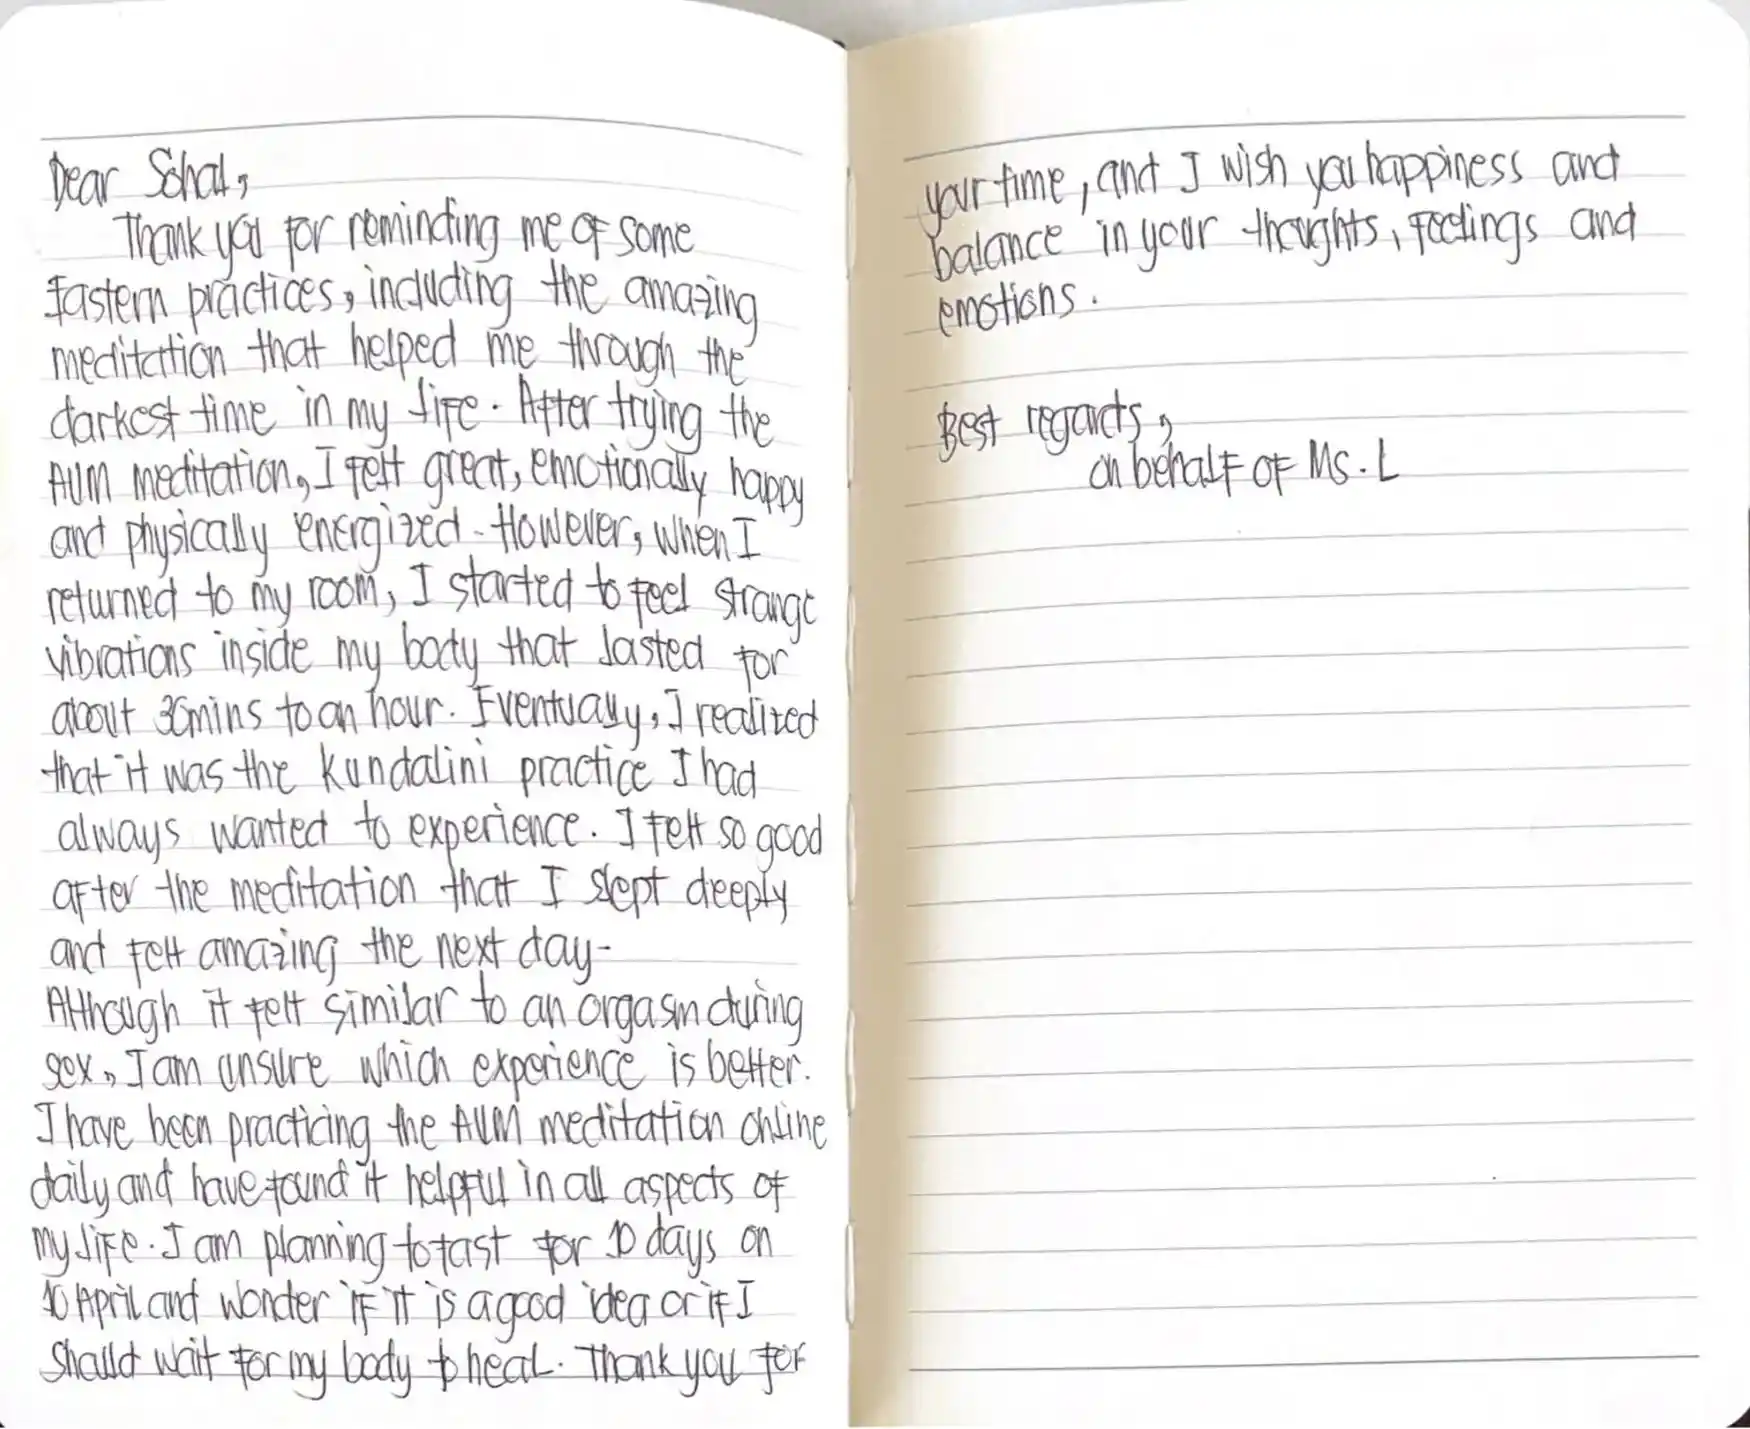 Dear Sohal,
Thank you for reminding me of some
Eastern practices, including the amazing
meditation that helped me through the
darkest time in my life. After trying the
AUM meditation, I felt great, emotionally happy
and physically energized. However, when I
returned to my room, I started to feel strange
vibrations inside my body that lasted for
about 30mins to an hour. Eventually, I realized
that it was the kundalini practice I had
always wanted to experience. I felt so good
after the meditation that I slept deeply
and felt amazing the next day.
Although it felt similar to an orgasm during
sex, I am unsure which experience is better.
I have been practicing the AUM meditation online
daily and have found it helpful in all aspects of
my life. I am planning to fast for 10 days on
10 April and wonder if it is a good idea or if I
should wait for my body to heal. Thank you for
your time, and I wish you happiness and
balance in your thoughts, feelings and
emotions.
Best regards,
on behalf of Ms. L